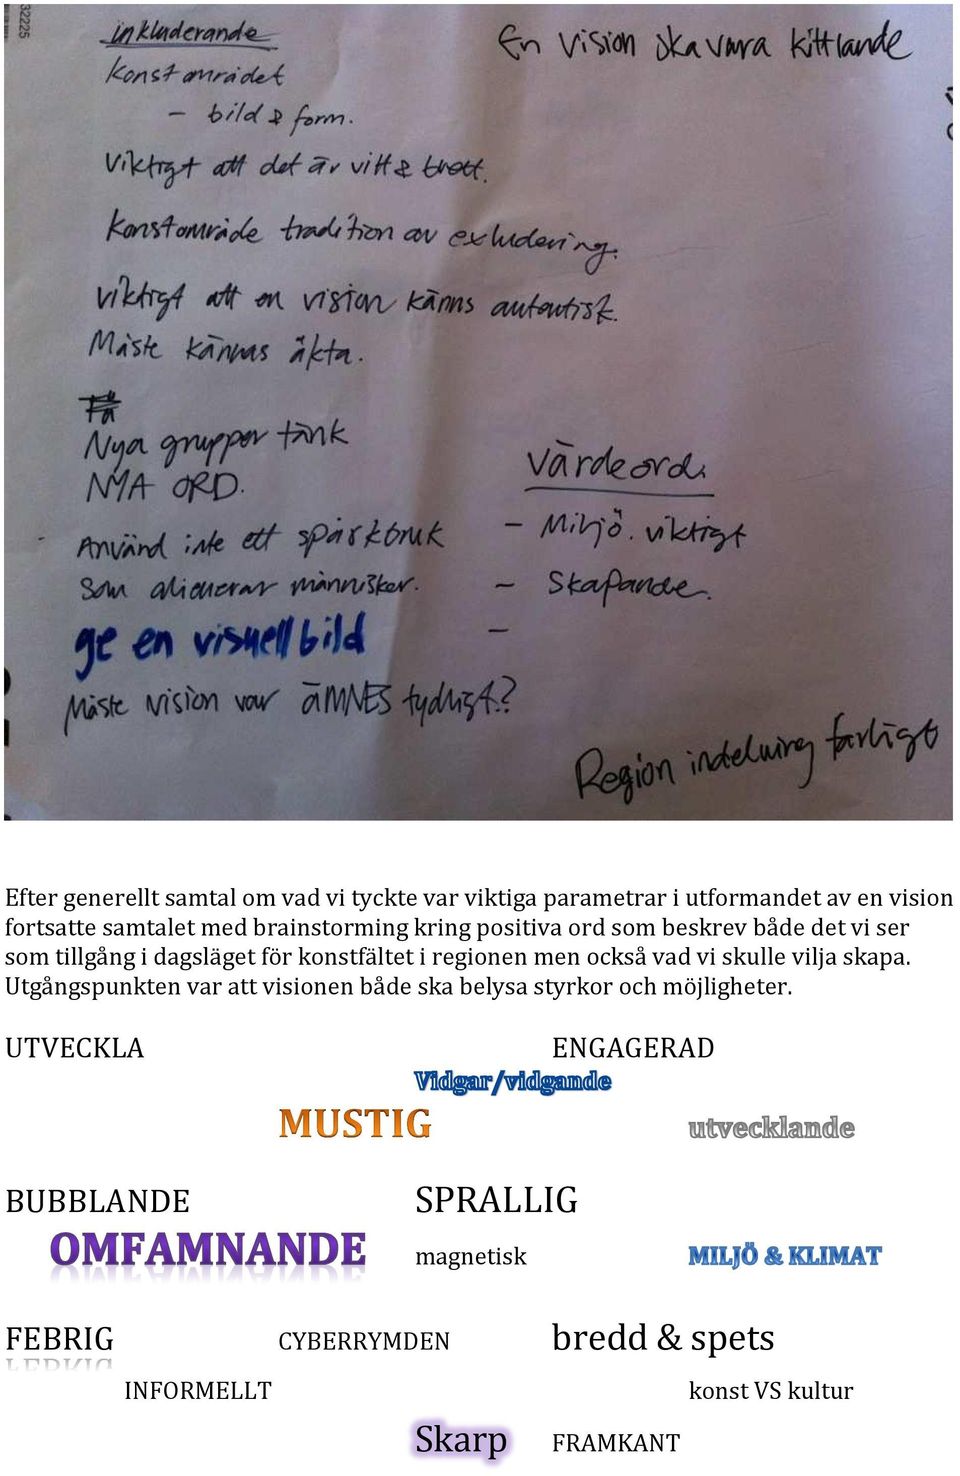 32225
inkluderande
En vision ska vara kittlande
Konstområdet
- bild & form.
Viktigt att det är vitt & brett.
Konstområde tradition av exludering.
viktigt att en vision känns autentisk.
Måste kännas äkta.
Få
Nya grupper tänk
NYA ORD.
Värdeord:
- Miljö. viktigt
Använd inte ett språkbruk
som alienerar människor.
- Skapande.
ge en visuell bild
-
Måste vision var ÄMNES tydligt?
Region indelning farligt
Efter generellt samtal om vad vi tyckte var viktiga parametrar i utformandet av en vision
fortsatte samtalet med brainstorming kring positiva ord som beskrev både det vi ser
som tillgång i dagsläget för konstfältet i regionen men också vad vi skulle vilja skapa.
Utgångspunkten var att visionen både ska belysa styrkor och möjligheter.
UTVECKLA ENGAGERAD
Vidgar/vidgande
MUSTIG utvecklande
BUBBLANDE SPRALLIG
OMFAMNANDE magnetisk MILJÖ & KLIMAT
FEBRIG CYBERRYMDEN bredd & spets
INFORMELLT konst VS kultur
Skarp FRAMKANT